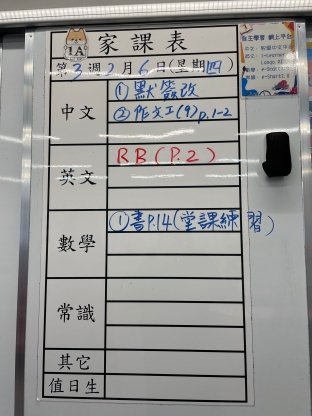 1A
家課表
第3週2月6日(星期四)
中文
①默簽改
②作文工(9)p.1-2
英文
RB(P.2)
數學
①書P.14(堂課練習)
常識
其它
值日生
自主學習 網上平台